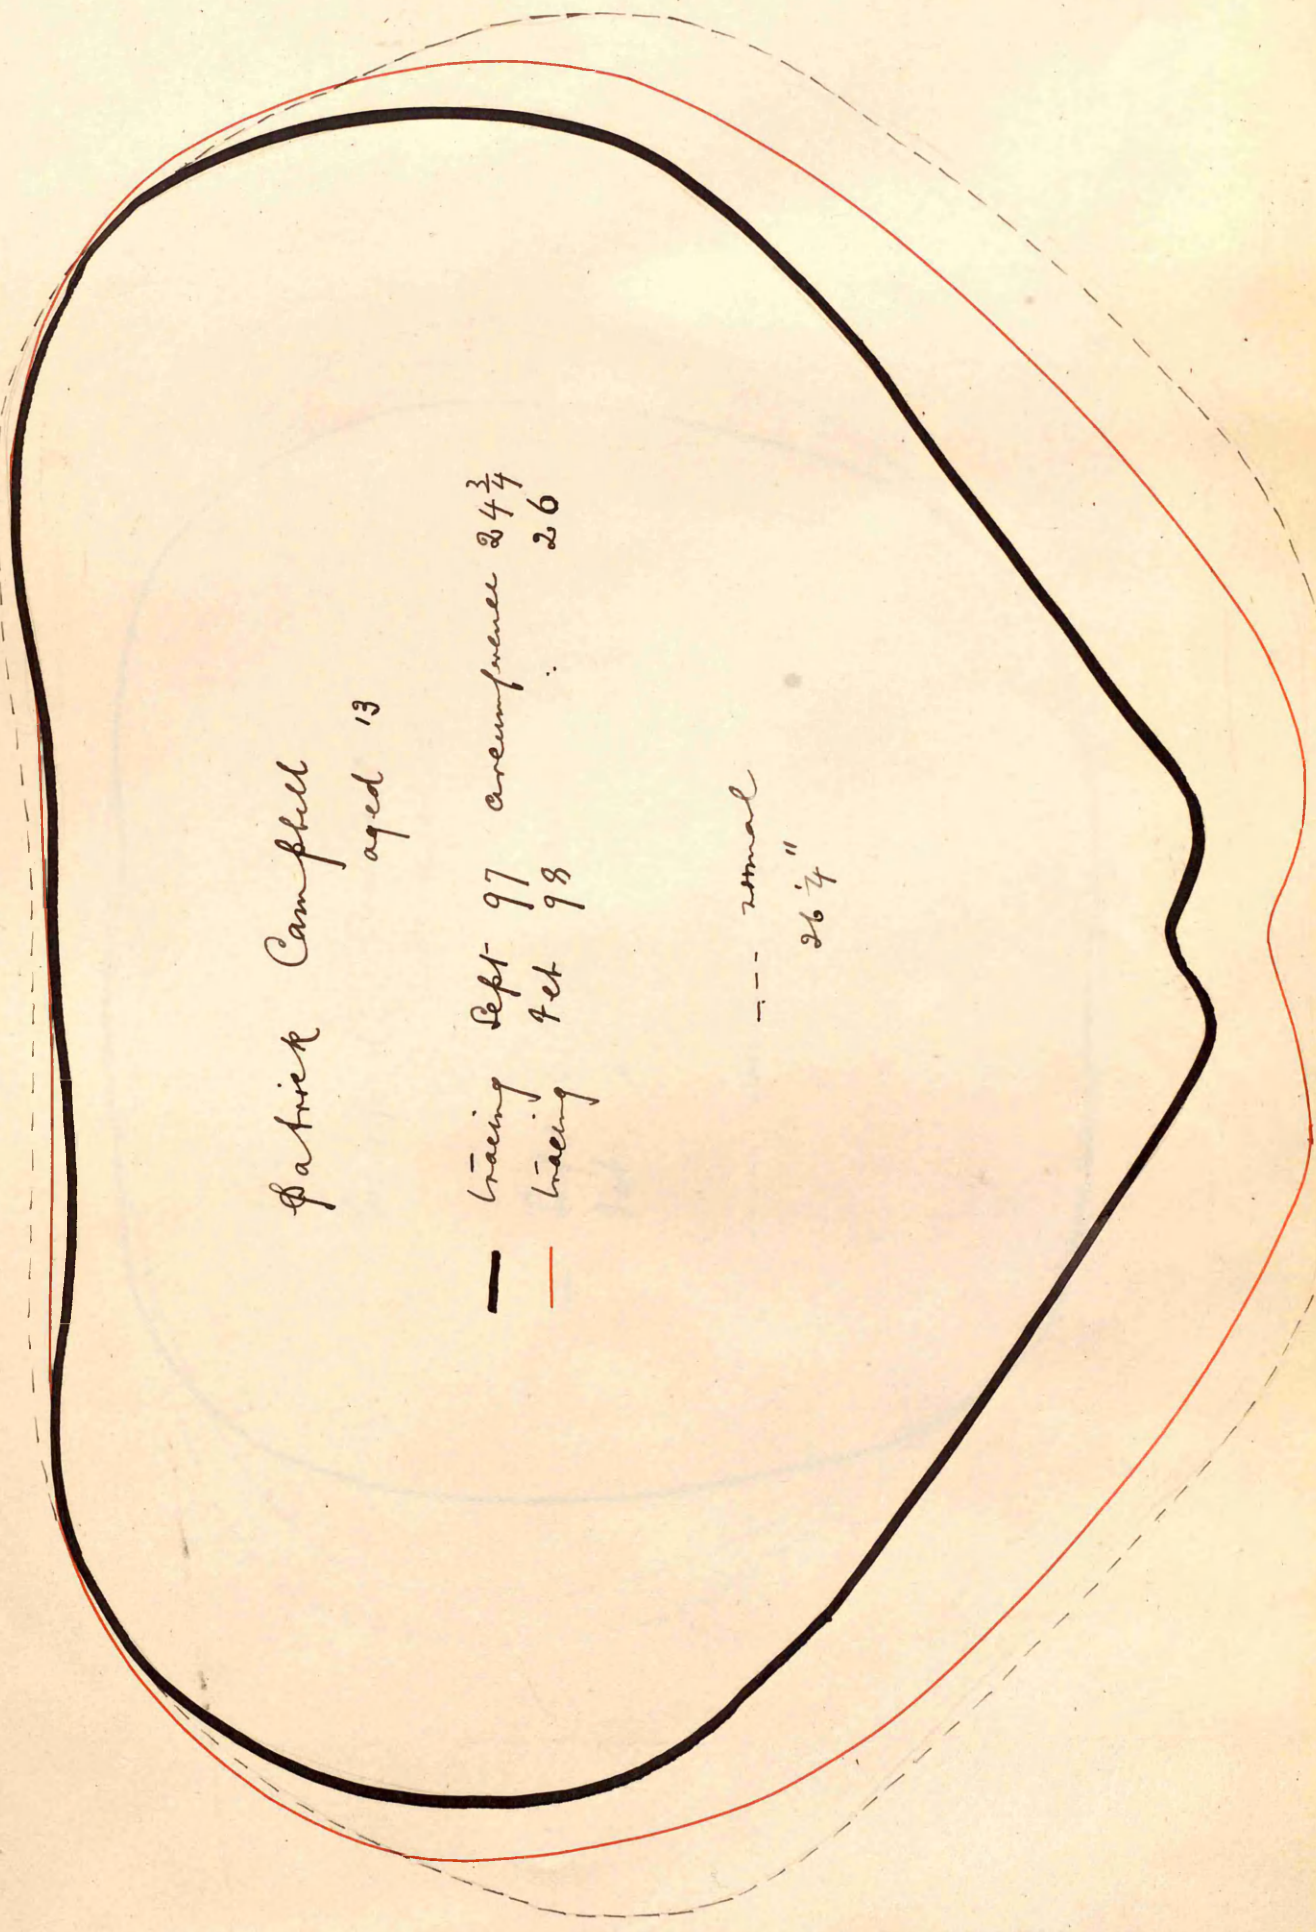 Patrick Campbell
aged 13
— tracing Sept 97 circumference 24 3/4
— tracing Feb 98 " 26
--- normal
26 1/4"